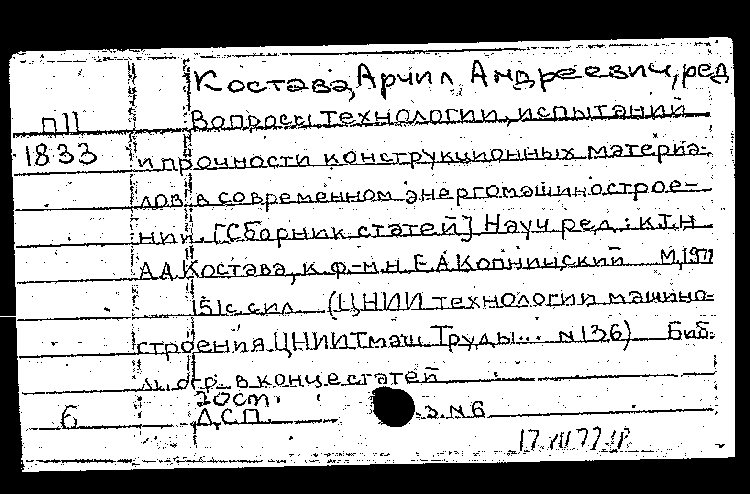 Костава, Арчил Андреевич, ред
П11 Вопросы технологии, испытаний
1833 и прочности конструкционных материа-
лов в современном энергомашинострое-
нии. [Сборник статей] Науч ред.: к.т.н
А.А.Костава, к.ф.-м.н Е.А.Копчинский М, 1977
151с. с ил. (ЦНИИ технологии машино-
строения ЦНИИТмаш Труды... N 136) Биб-
лиогр. в конце статей
20 cm.
6 Д.С.П. З. N 6